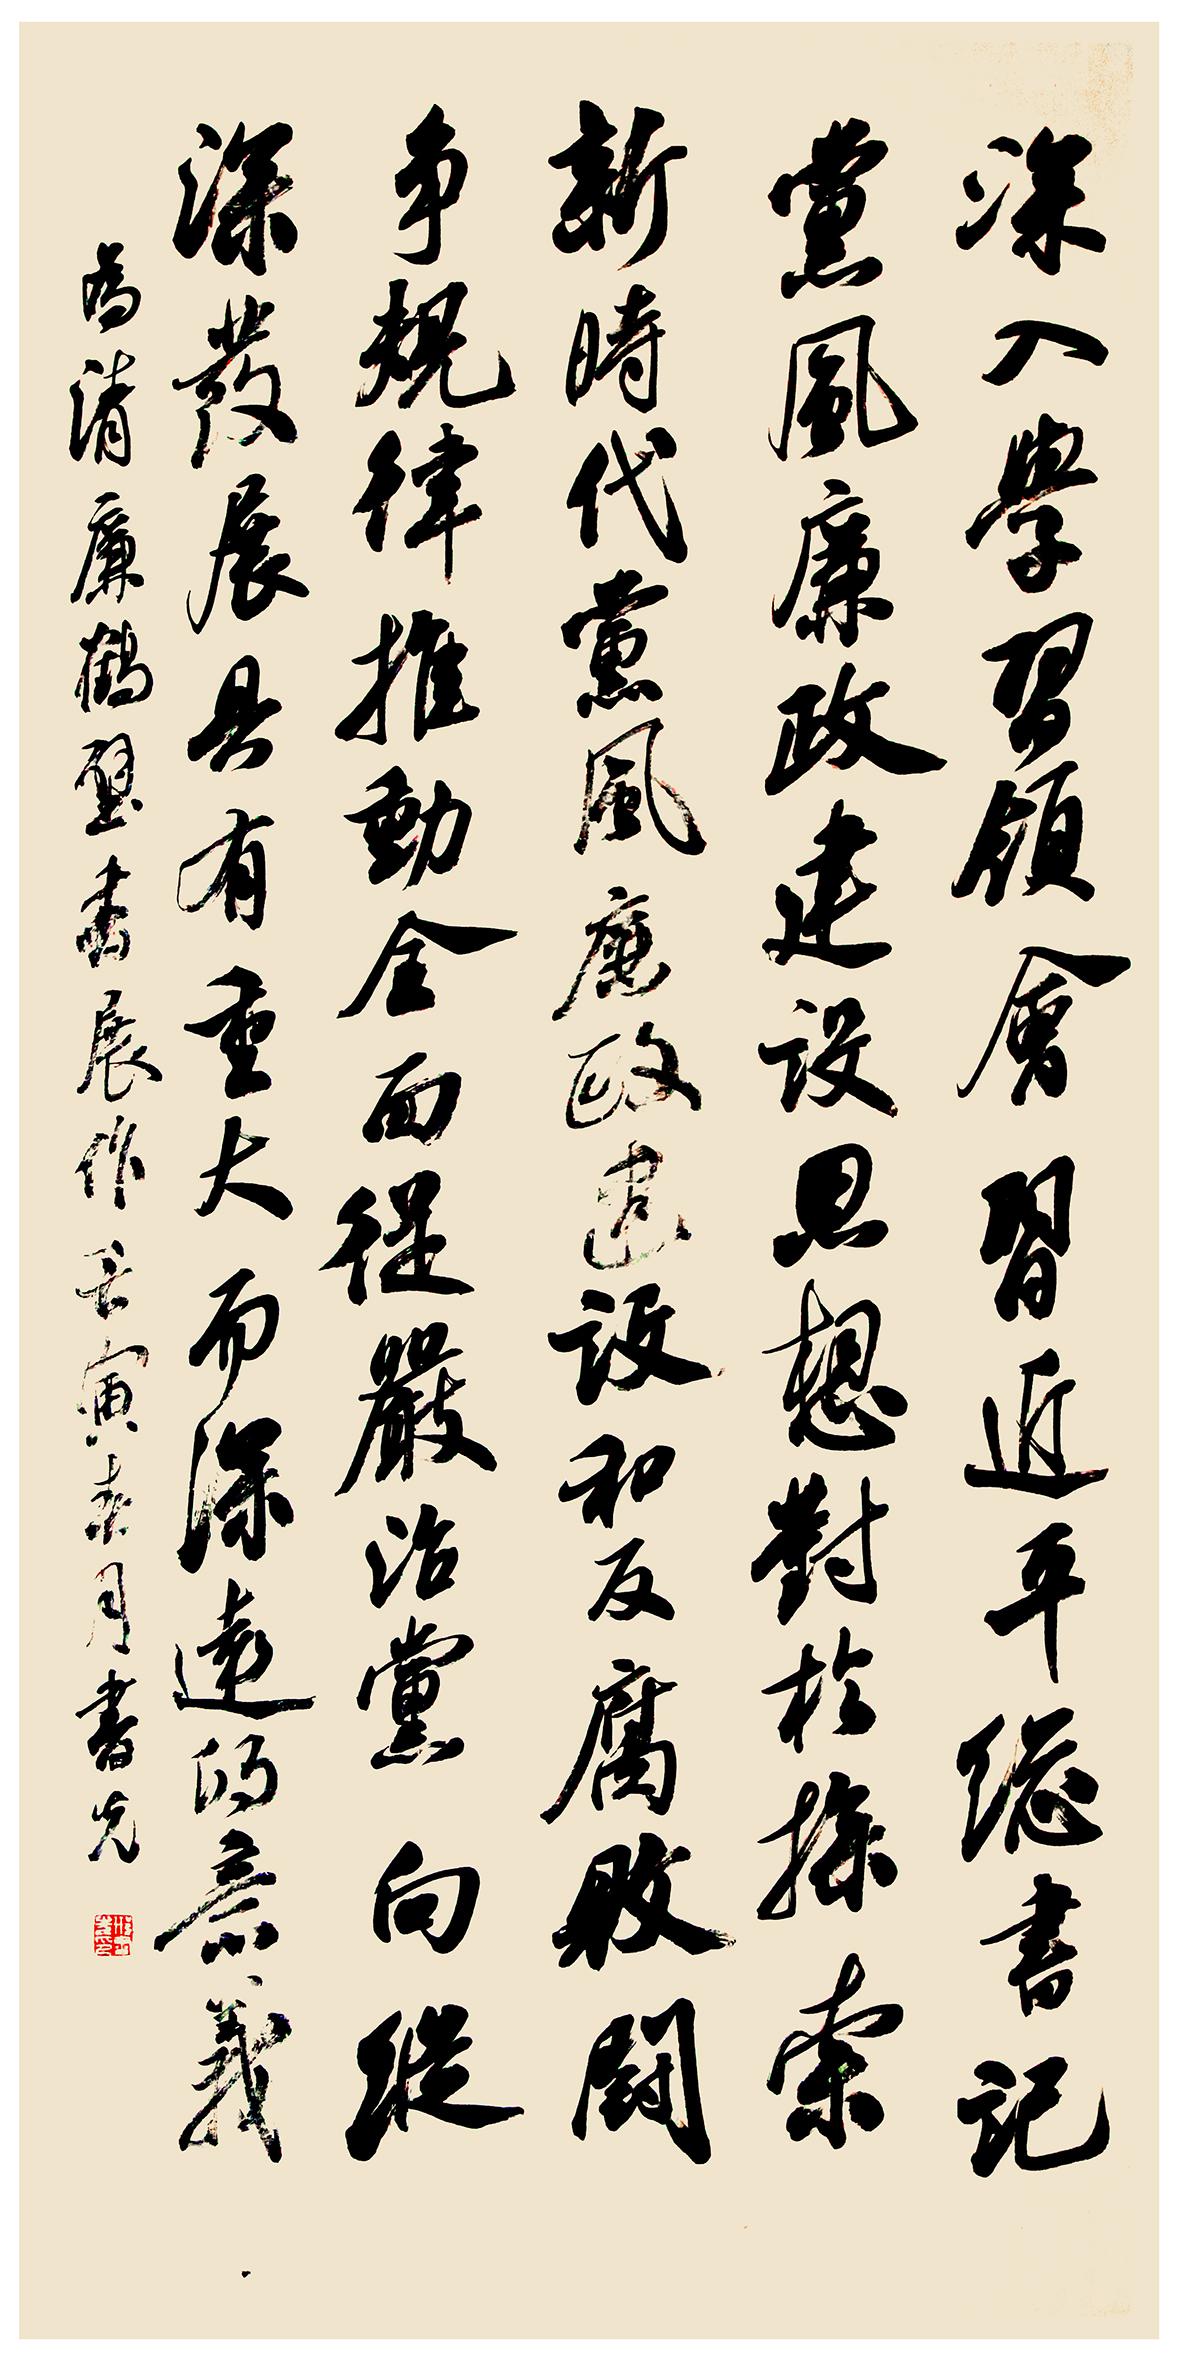 深入學習領會習近平總書記
黨風廉政建設思想對於探索
新時代黨風廉政建設和反腐敗鬪
争規律推動全面從嚴治黨向縱
深發展具有重大而深遠的意義
為清廉鶴壁書展作壬寅春月書光